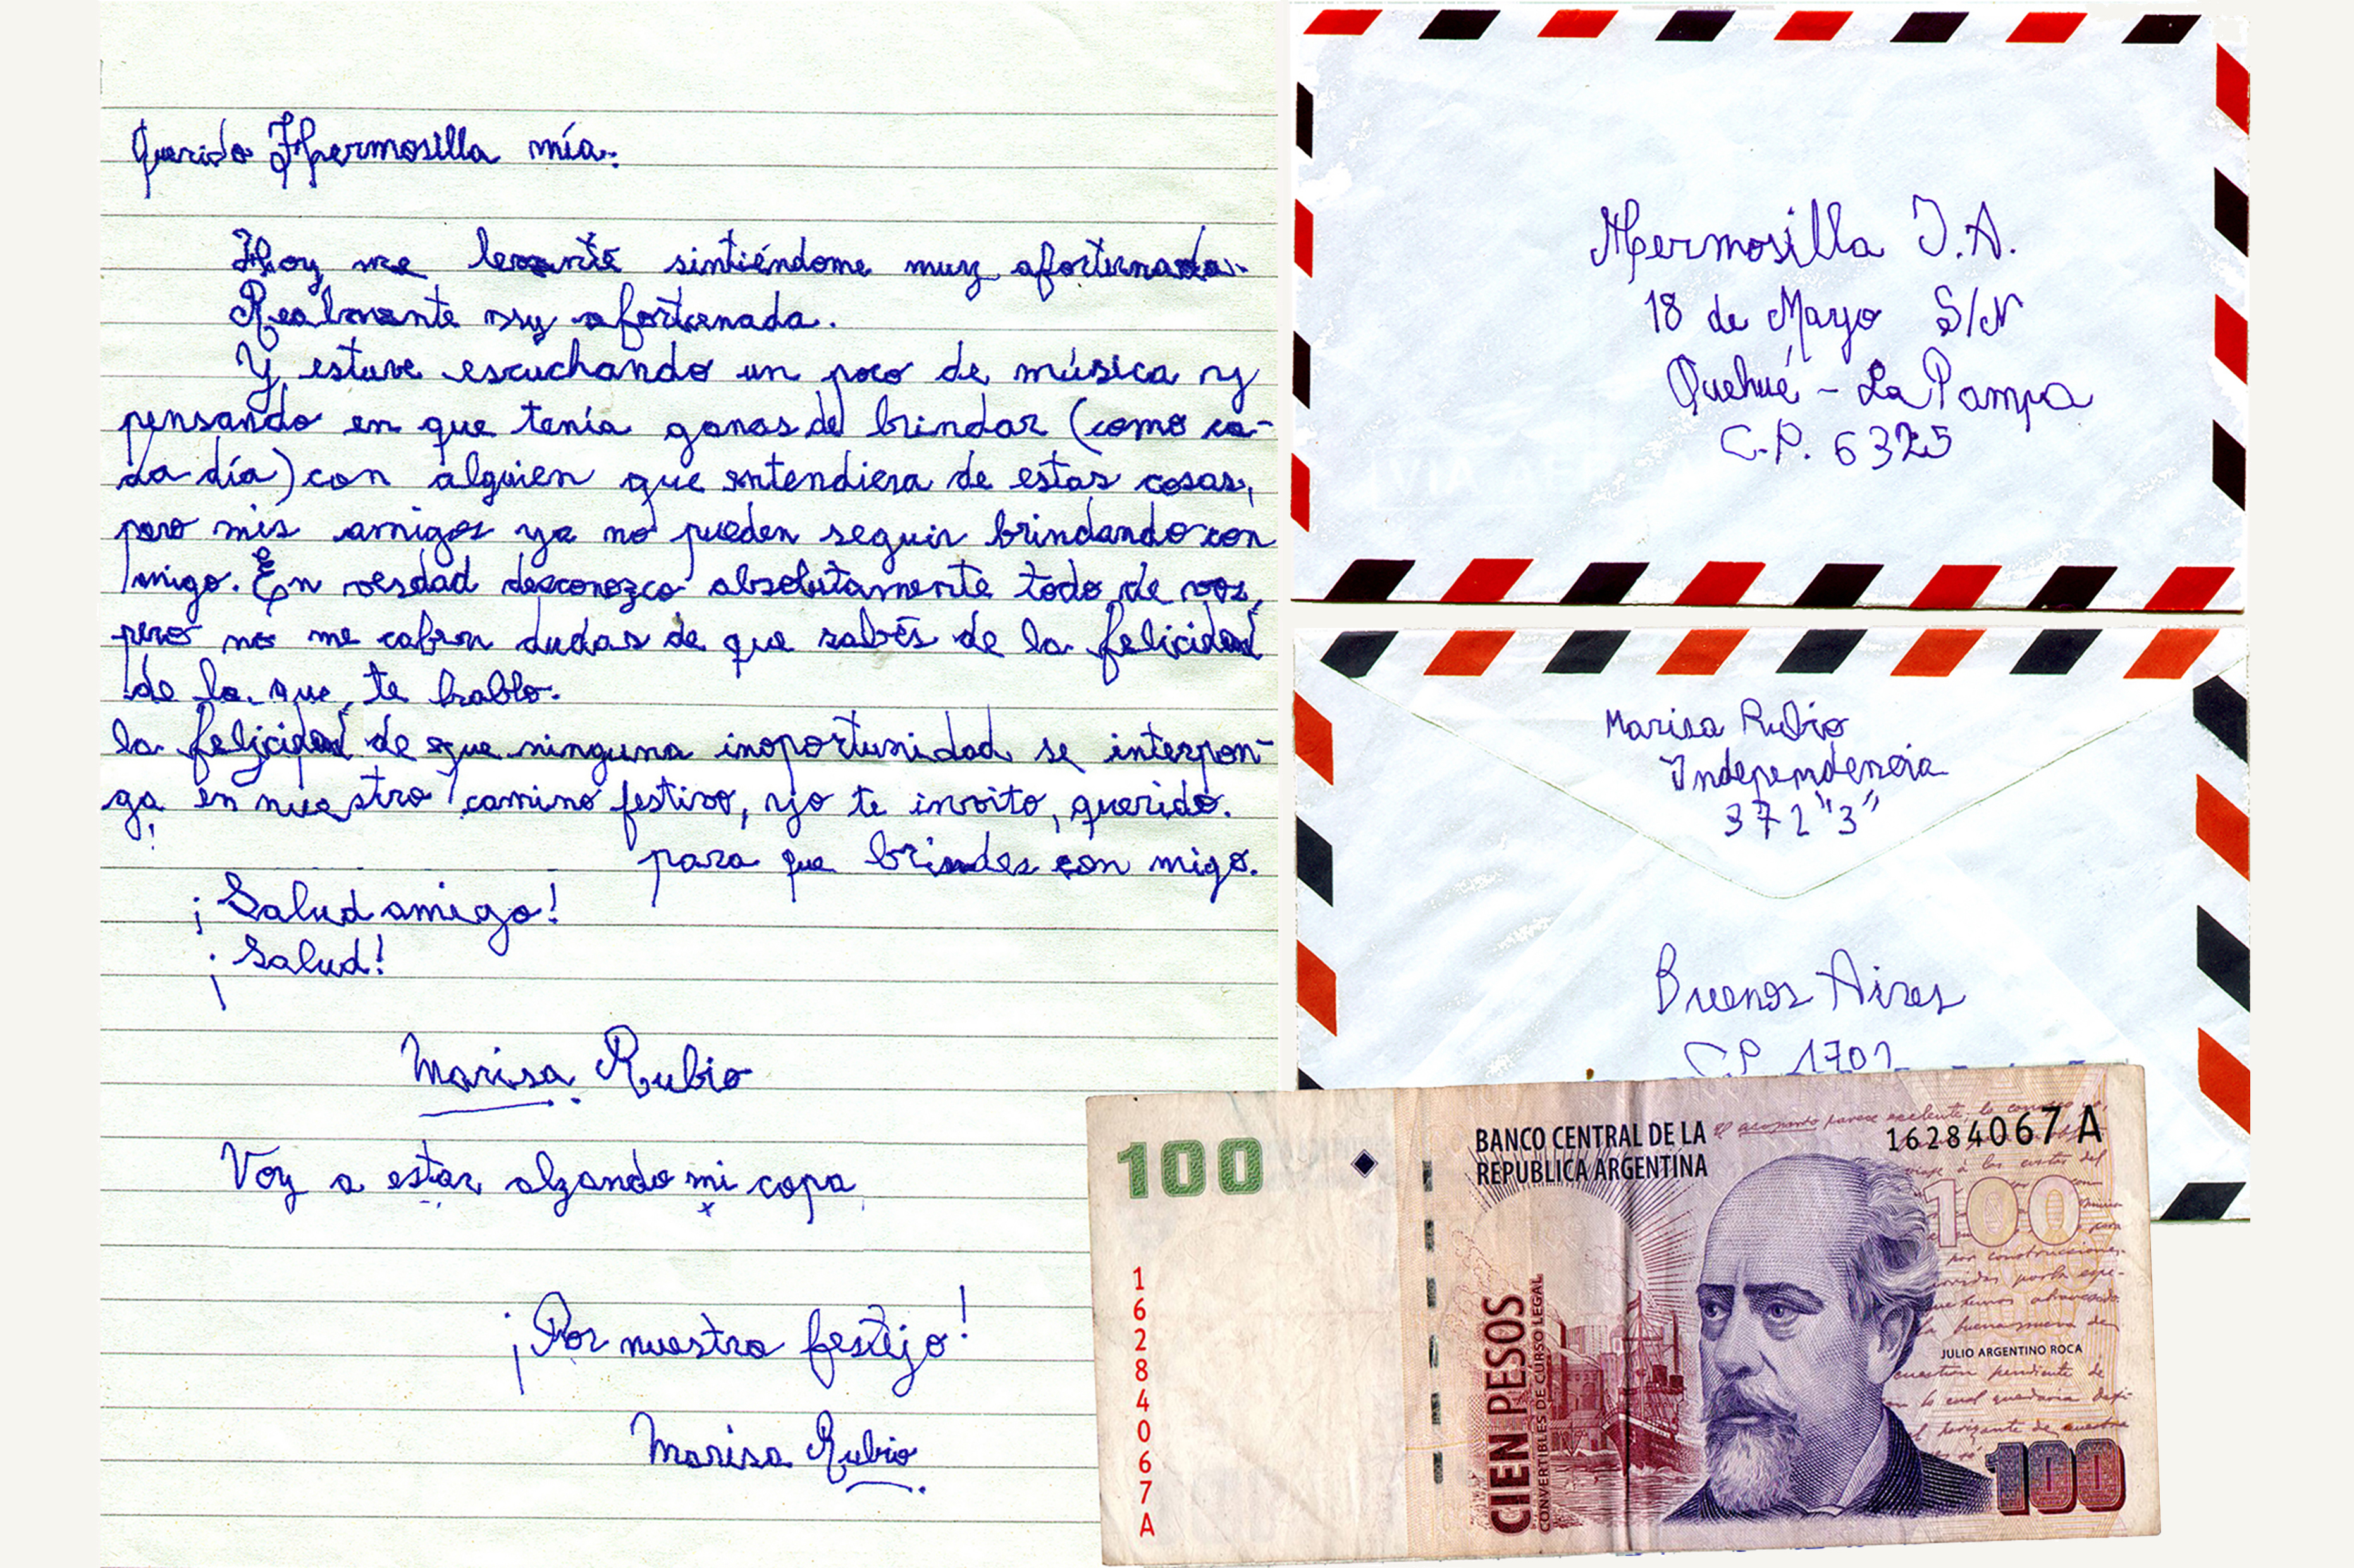 Querido Hermosilla mía:
Hoy me levanté sintiéndome muy afortunada.
Realmente muy afortunada.
Y estuve escuchando un poco de música y
pensando en que tenía ganas de brindar (como ca-
da día) con alguien que entendiera de estas cosas,
pero mis amigos ya no pueden seguir brindando con
migo. En verdad desconozco absolutamente todo de vos,
pero no me caben dudas de que sabés de la felicidad
de la que te hablo.
la felicidad de que ninguna inoportunidad se interpon-
ga en nuestro camino festivo, yo te invito, querido.
para que brindes con migo.
¡Salud amigo!
¡Salud!
Marisa Rubio
Voy a estar alzando mi copa
¡Por nuestro festejo!
Marisa Rubio
Hermosilla J.A.
18 de Mayo S/N
Quehué - La Pampa
C.P. 6325
Marisa Rubio
Independencia
372 "3"
Buenos Aires
CP 1702
100
BANCO CENTRAL DE LA
REPUBLICA ARGENTINA
16284067A
100
16284067A
CIEN PESOS
CONVERTIBLES DE CURSO LEGAL
JULIO ARGENTINO ROCA
100